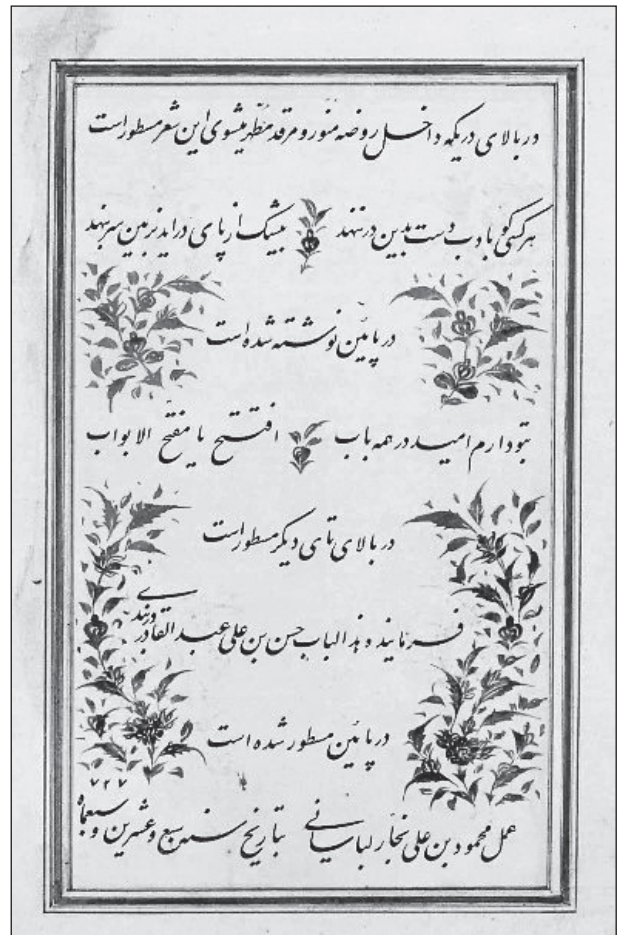 در بالای در یکه داخل روضه منور و مرقد مطهر میشوی این شعر مسطور است
هر کسی کو بادب دست بدین در ننهد بیشک از پای دراید بزمین سر بنهد
در پائین نوشته شده است
بتو دارم امید در همه باب افتتح یا مفتح الابواب
در بالای تای دیگر مسطور است
فرمایندۀ هذ الباب حسن بن علی عبد القادر
در پائین مسطور شده است
۷۲۷
عمل محمود بن علی نجار لباسانی بتاریخ سنه سبع و عشرین و سبعماه